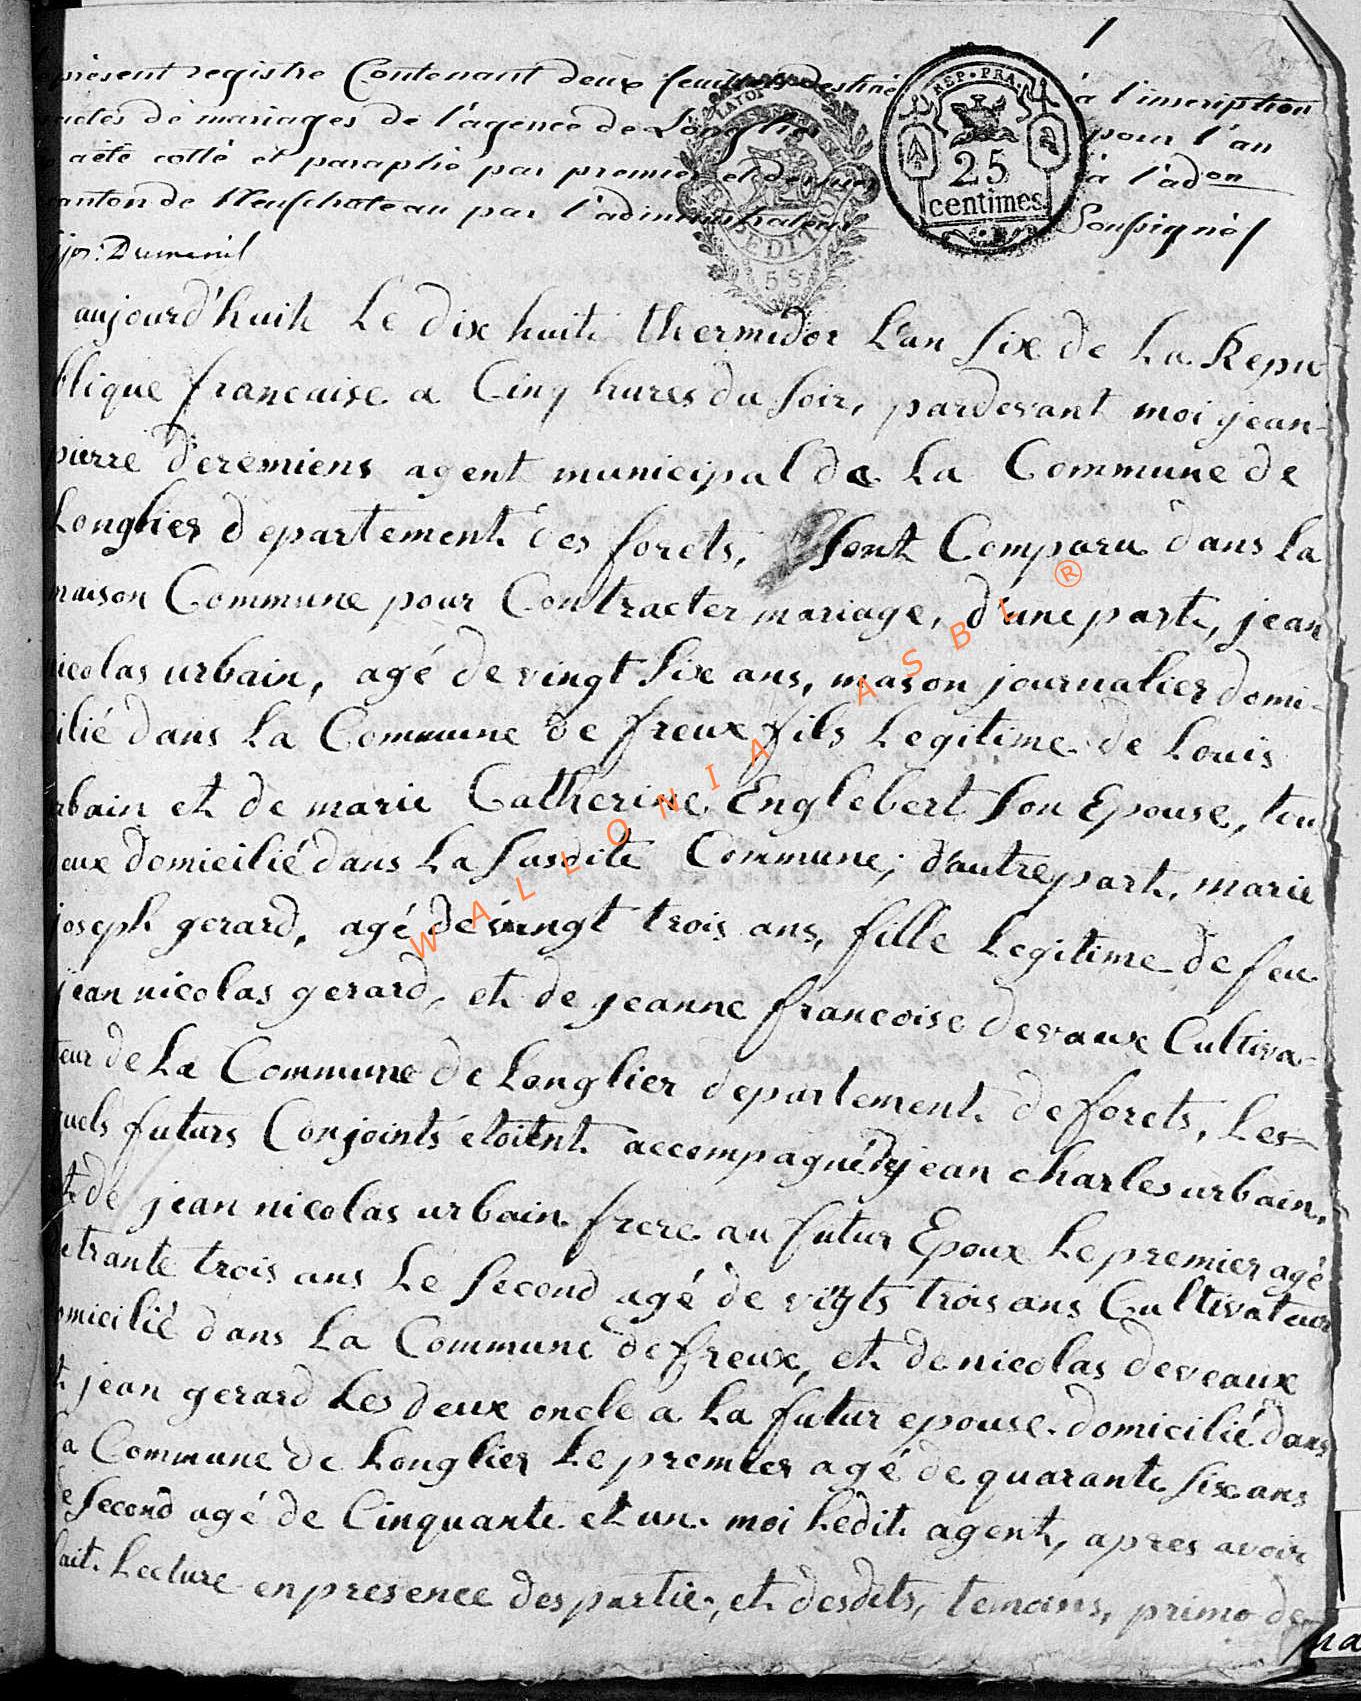 1
présent registre Contenant deux feuillets destiné à l'inscription
actes de mariages de l'agence de Longlier pour l'an
a été cotté et paraphé par premier et dernier à l'adon
canton de Neufchateau par l'administrateur Soussigné
jos: Dumenil
REP. FRA.
25
centimes
aujourd'huit Le dix huit thermidor L'an six de La Repu
blique francaise a Cinq hures du soir, pardevant moi jean
pierre Deremiens agent municipal de La Commune de
Longlier departement des forets, Sont Comparu dans La
maison Commune pour Contracter mariage, d'une part, jean
nicolas urbain, agé de vingt six ans, mason journalier domi-
cilié dans La Commune de freux fils Legitime de Louis
urbain et de marie Catherine Englebert son Epouse, tou
deux domicilié dans La susdite Commune; d'autre part, marie
joseph gerard, agé de vingt trois ans, fille Legitime de feu
jean nicolas gerard, et de jeanne francoise devaux Cultiva-
teur de La Commune de Longlier departement de forets, Les-
quels futurs Conjoints étoient accompagné de jean charles urbain,
et de jean nicolas urbain frere au futur Epoux Le premier agé
de trante trois ans Le second agé de vigts trois ans Cultivateur
domicilié dans La Commune de freux, et de nicolas deveaux
et jean gerard Les deux oncle a La futur epouse domicilié dans
La Commune de Longlier Le premier agé de quarante six ans
Le second agé de Cinquante et un moi Ledit agent, apres avoir
fait Lecture en presence des partie, et desdits, temoins, primo de
WALLONIA ASBL ®